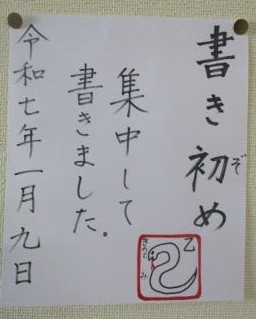 書き初め
ぞ
集中して
書きました。
令和七年一月九日
乙
きのと
み